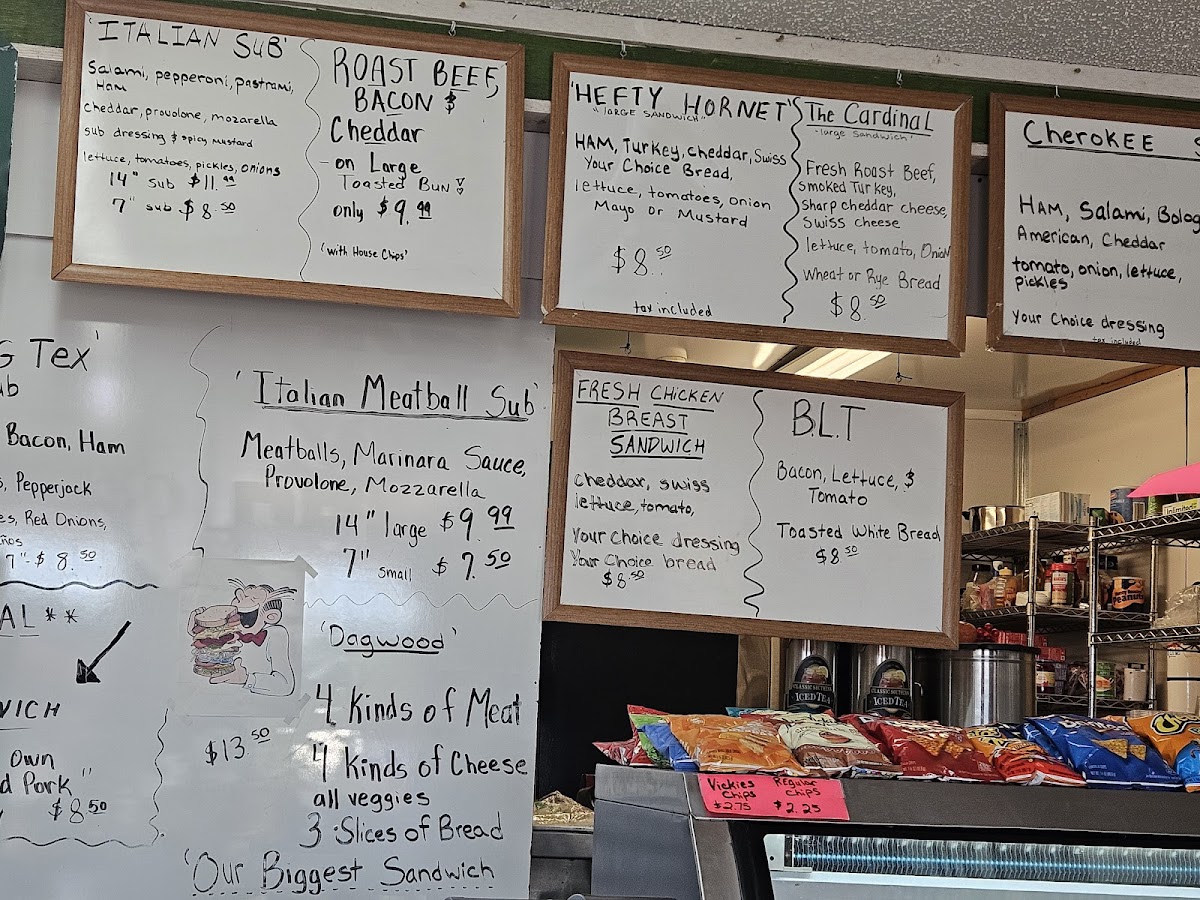 'ITALIAN SUB'
Salami, pepperoni, pastrami,
Ham
cheddar, provolone, mozarella
sub dressing & spicy mustard
lettuce, tomatoes, pickles, onions
14" sub $11.99
7" sub $8.50
ROAST BEEF,
BACON &
Cheddar
- on Large
Toasted Bun
only $9.99
'with House Chips'
'HEFTY HORNET'S
"LARGE SANDWICH"
HAM, Turkey, cheddar, Swiss
Your Choice Bread,
lettuce, tomatoes, onion
Mayo or Mustard
$8.50
tax included
The Cardinal
-large Sandwich'
Fresh Roast Beef,
smoked Turkey,
sharp cheddar cheese,
Swiss cheese
lettuce, tomato, Onion
wheat or Rye Bread
$8.50
Cherokee S
HAM, Salami, Bolog
American, Cheddar
tomato, onion, lettuce,
pickles
Your Choice dressing
tax included
G Tex'
ub
Bacon, Ham
, Pepperjack
es, Red Onions,
ños
7"-$8.50
AL**
WICH
Own
d Pork"
$8.50
'Italian Meatball Sub'
Meatballs, Marinara Sauce,
Provolone, Mozzarella
14" large $9.99
7" small $7.50
'Dagwood'
$13.50
4 Kinds of Meat
4 Kinds of Cheese
all veggies
3 Slices of Bread
'Our Biggest Sandwich
FRESH CHICKEN
BREAST
SANDWICH
cheddar, swiss
lettuce, tomato,
Your Choice dressing
Your Choice bread
$8.50
B.L.T
Bacon, Lettuce, &
Tomato
Toasted White Bread
$8.50
CLASSIC SOUTHERN
ICED TEA
CLASSIC SOUTHERN
ICED TEA
Vickies
Chips
$2.75
Regular
Chips
$2.25